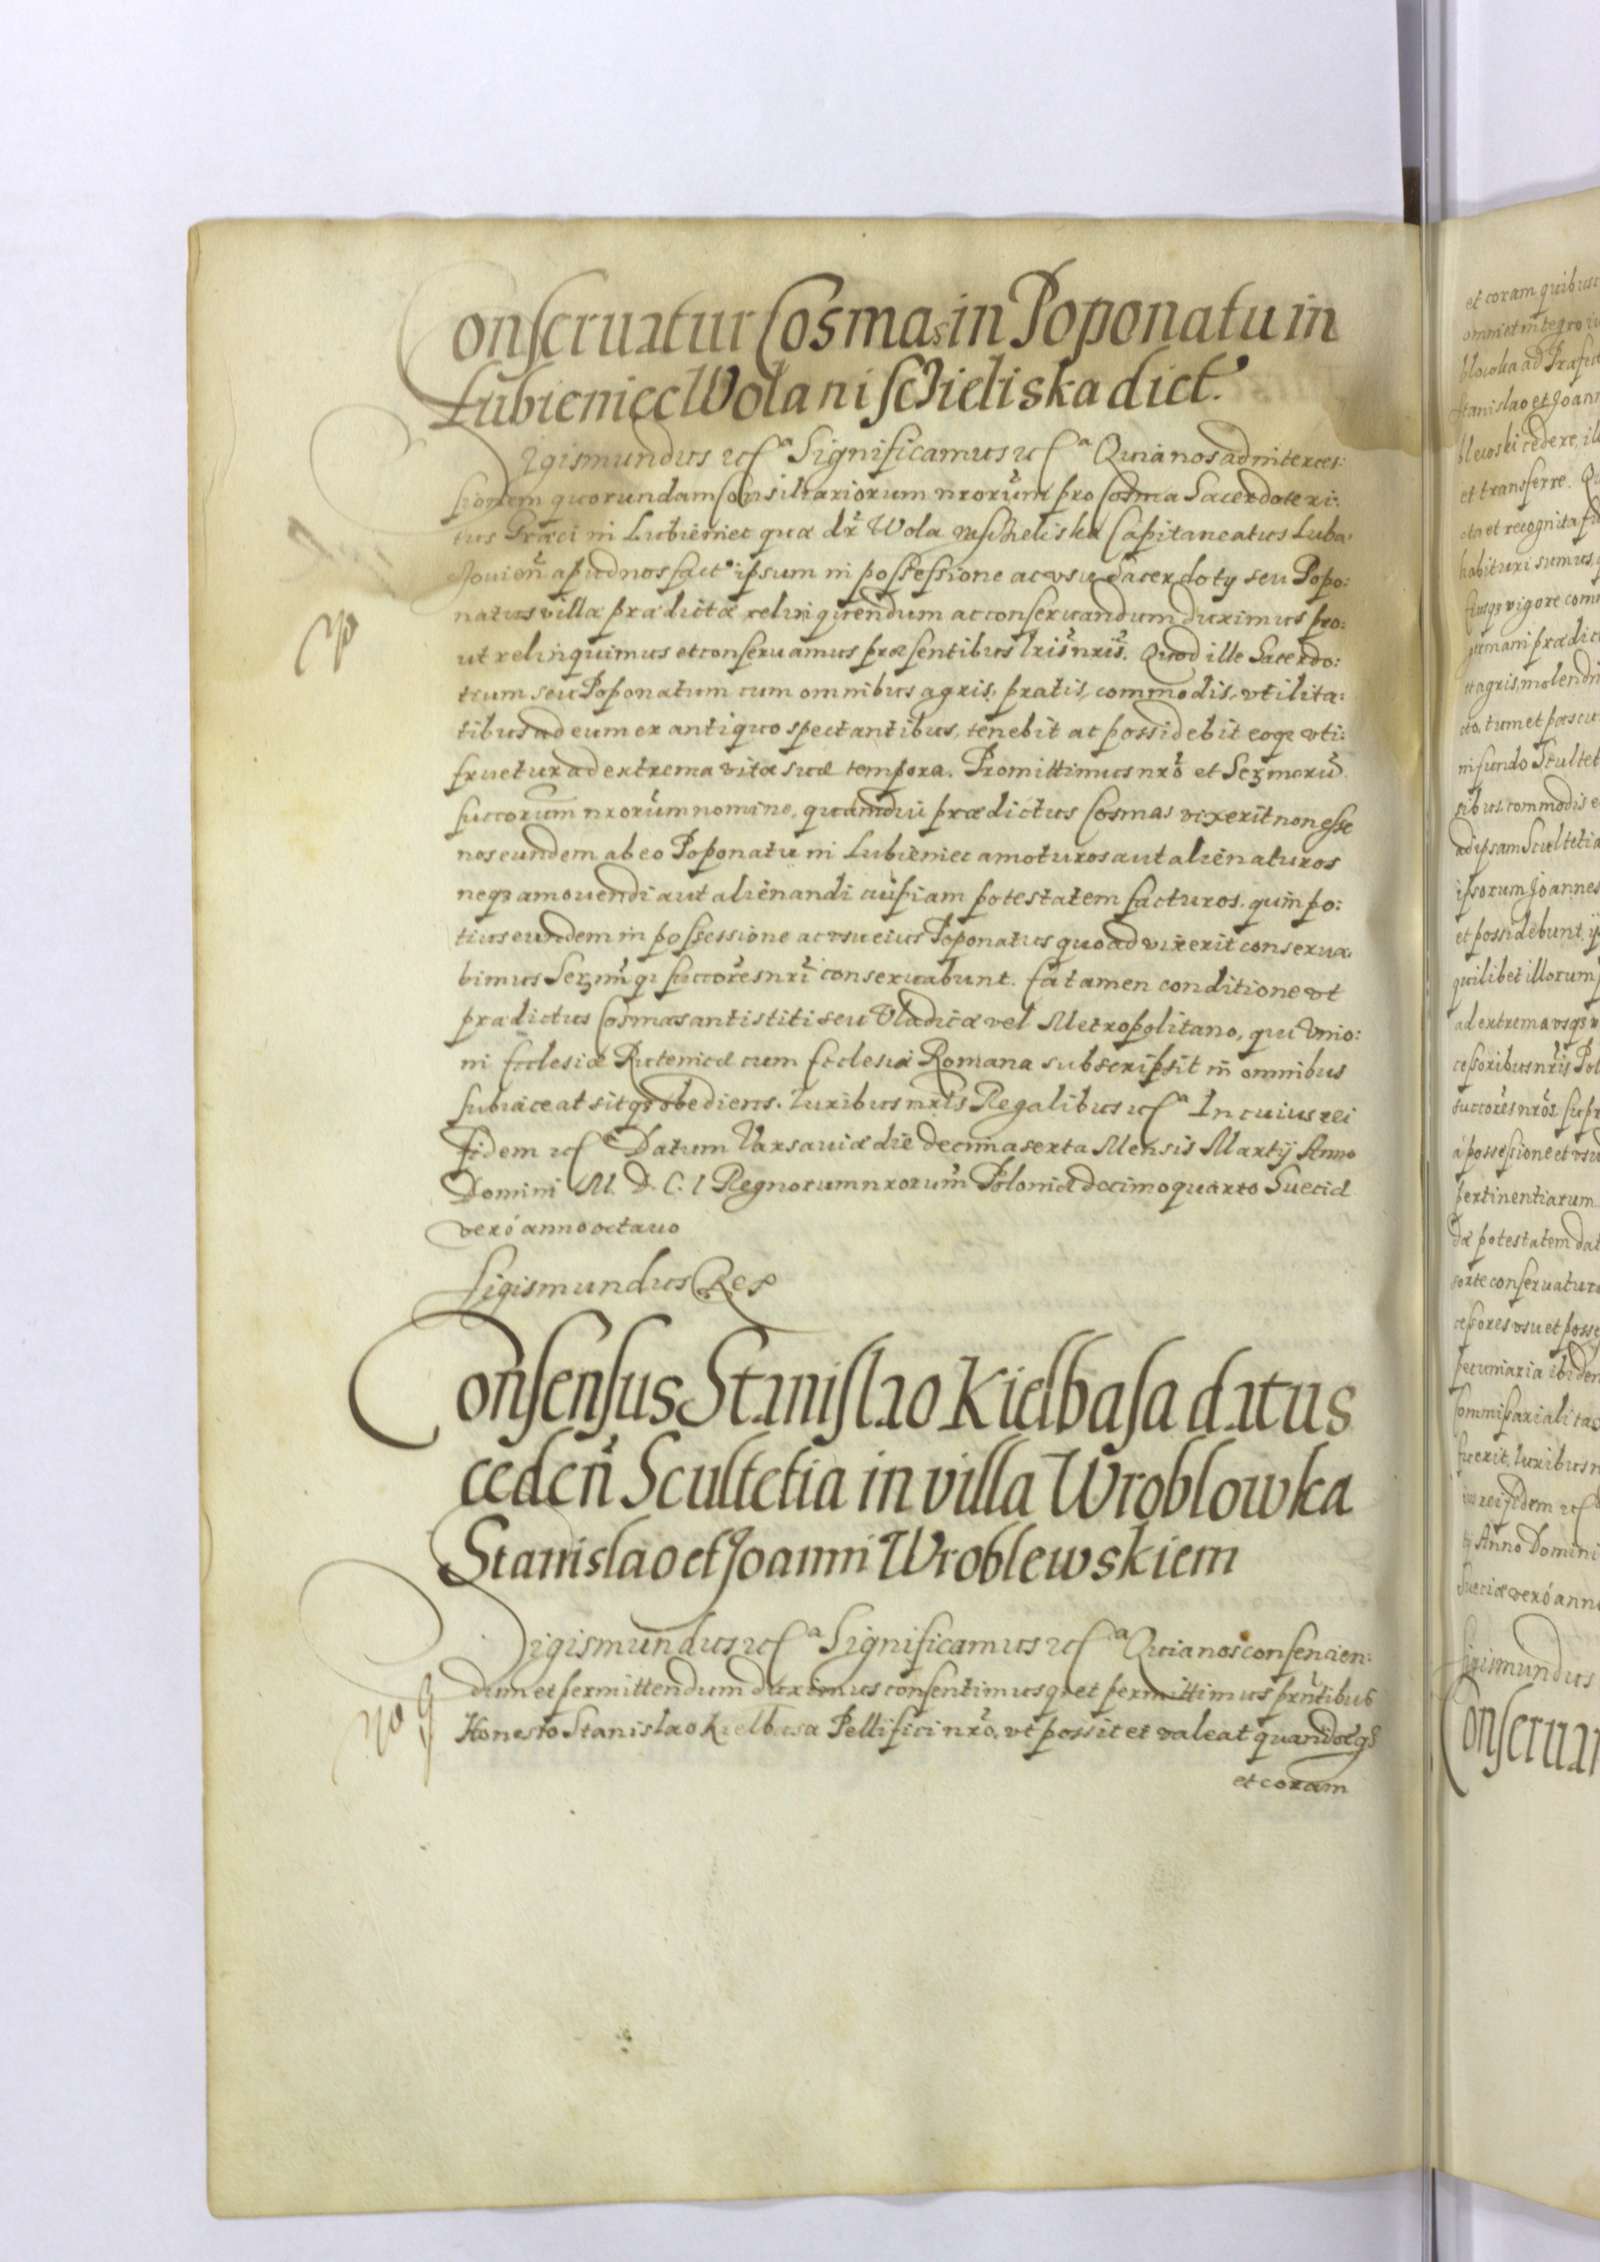 Conseruatur Cosmas in Poponatu in
Lubieniec Wola niscZieliska dict.
Sigismundus etc.ª Significamus etc.ª Quia nos ad interces:
sionem quorundam Consiliariorum nrorum pro Cosma Sacerdote ri:
tus Græci in Lubieniec quæ dr Wola Capitaneatus Luba:
czouien apud nos fact ipsum in possessione ac vsu Sacerdoty seu Popo:
natus villæ prædictæ relinquendum ac conseruandum duximus pro:
ut relinquimus et conseruamus præsentibus lris nris. Quod ille Sacerdo:
tium seu Poponatum cum omnibus agris, pratis, commodis, vtilita:
tibus ad eum ex antiquo spectantibus, tenebit ac possidebit eoqȝ vti:
fruetur ad extrema vitæ suæ tempora. Promittimus nro et Serȝmorū
succorum nrorum nomine, quamdiu prædictus Cosmas vixerit non esse
nos eundem ab eo Poponatu in Lubieniec amoturos aut alienaturos
neqȝ amouendi aut alienandi cuipiam potestatem facturos. quin po:
tius eundem in possessione ac vsu eius Poponatus quoad vixerit conserua:
bimus Serȝmi qȝ succores nri conseruabunt. Ea tamen conditione vt
prædictus Cosmas antistiti seu Vladicæ vel Metropolitano, qui Vnio:
ni Ecclesiæ Rutenicæ cum Ecclesia Romana subscripsit in omnibus
subiaceat sitqȝ obediens. Iuribus nris Regalibus etc.ª In cuius rei
fidem etc.ª Datum Varsauiæ die decima sexta Mensis Martij Anno
Domini M. D. C. I Regnorum nrorum Poloniæ decimo quarto Sueciæ
veró anno octauo
Sigismundus Rex
Consensus Stanislao Kielbasa datus
ceden Scultetia in villa Wroblowka
Stanislao et Joanni Wroblewskiem
Sigismundus etc.ª Significamus etc.ª Quia nos consencien:
dum et permittendum duximus consentimusqȝ et permittimus prntibus
Honesto Stanislao Kielbasa Pellifici nro, vt possit et valeat quandocqȝ
et coram
et coram quibusc
omni et integro iu
Stanislao et Joann
blewski cedere, il
et transferre. Qu
cta et recognita
habituri sumus,
Eiusqȝ vigore com
et agris, molendin
cto, tum et pascu
in fundo Scultet
sibus commodis e
ad ipsam Scultetia
ipsorum Joannes
et possidebunt, ij
quilibet illorum
ad extrema vsqȝ v
cessoribus nris Pol
succores nros
á possessione et vsu
pertinentiarum
dæ potestatem dat
conseruatur
cessores vsu et posse
pecuniaria ibiden
Commissariali tax
fuerit. Iuribus n
ius rei fidem etc.ª
tij Anno Domini
Sueciæ veró anno
Sigismundus
Conseruat